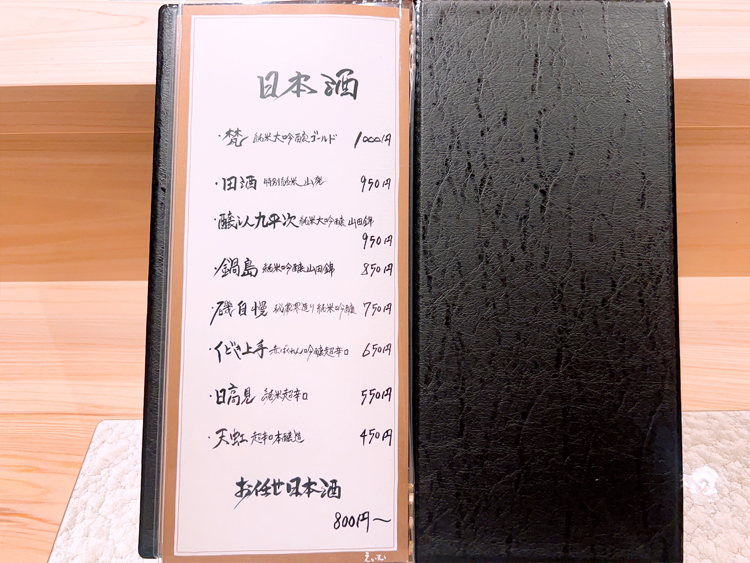 日本酒
・梵 純米大吟醸ゴールド 1000円
・田酒 特別純米 山廃 950円
・醸し人九平次 純米大吟醸 山田錦
950円
・鍋島 純米吟醸山田錦 850円
・磯自慢 純米吟醸 750円
・くどき上手 赤ばくれん吟醸超辛口 650円
・日高見 純米超辛口 550円
・天虹 超辛口本醸造 450円
お任せ日本酒
800円〜